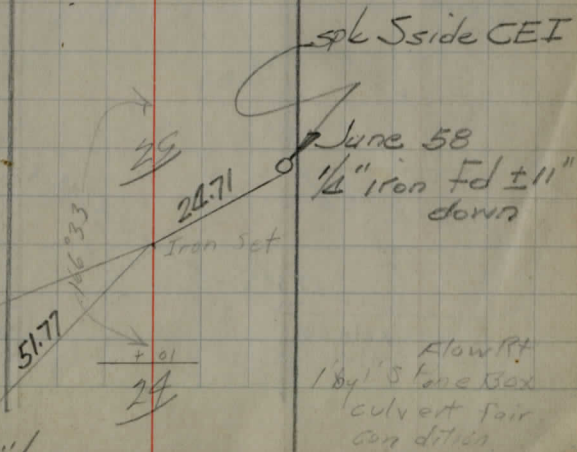 spk Sside CEI
June 58
1/4" iron Fd ±11"
down
24.71
Iron Set
166°33
51.77
+ 01
24
Flow Rt
1' by 1' Stone Box
culvert fair
condition